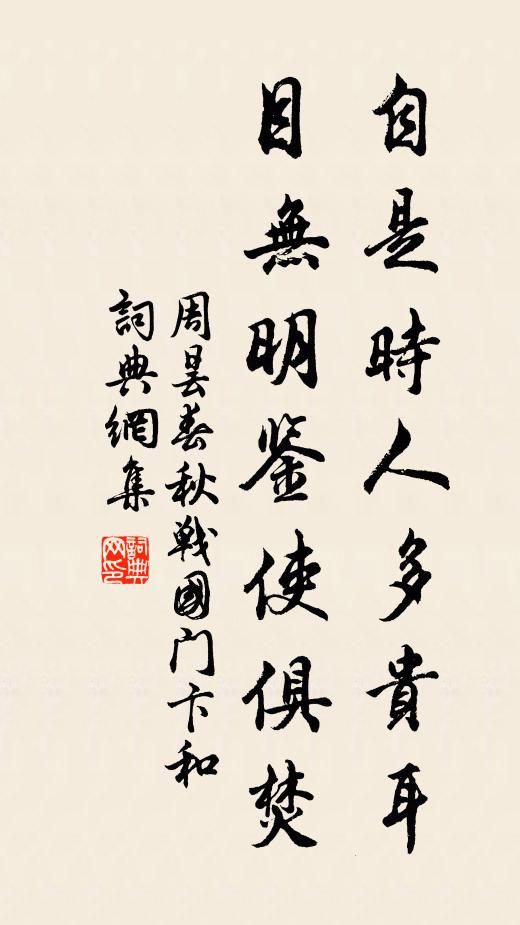 自是時人多貴耳
目無明鉴使俱焚
周昙春秋戦國门卞和
詞典網集
詞典网印